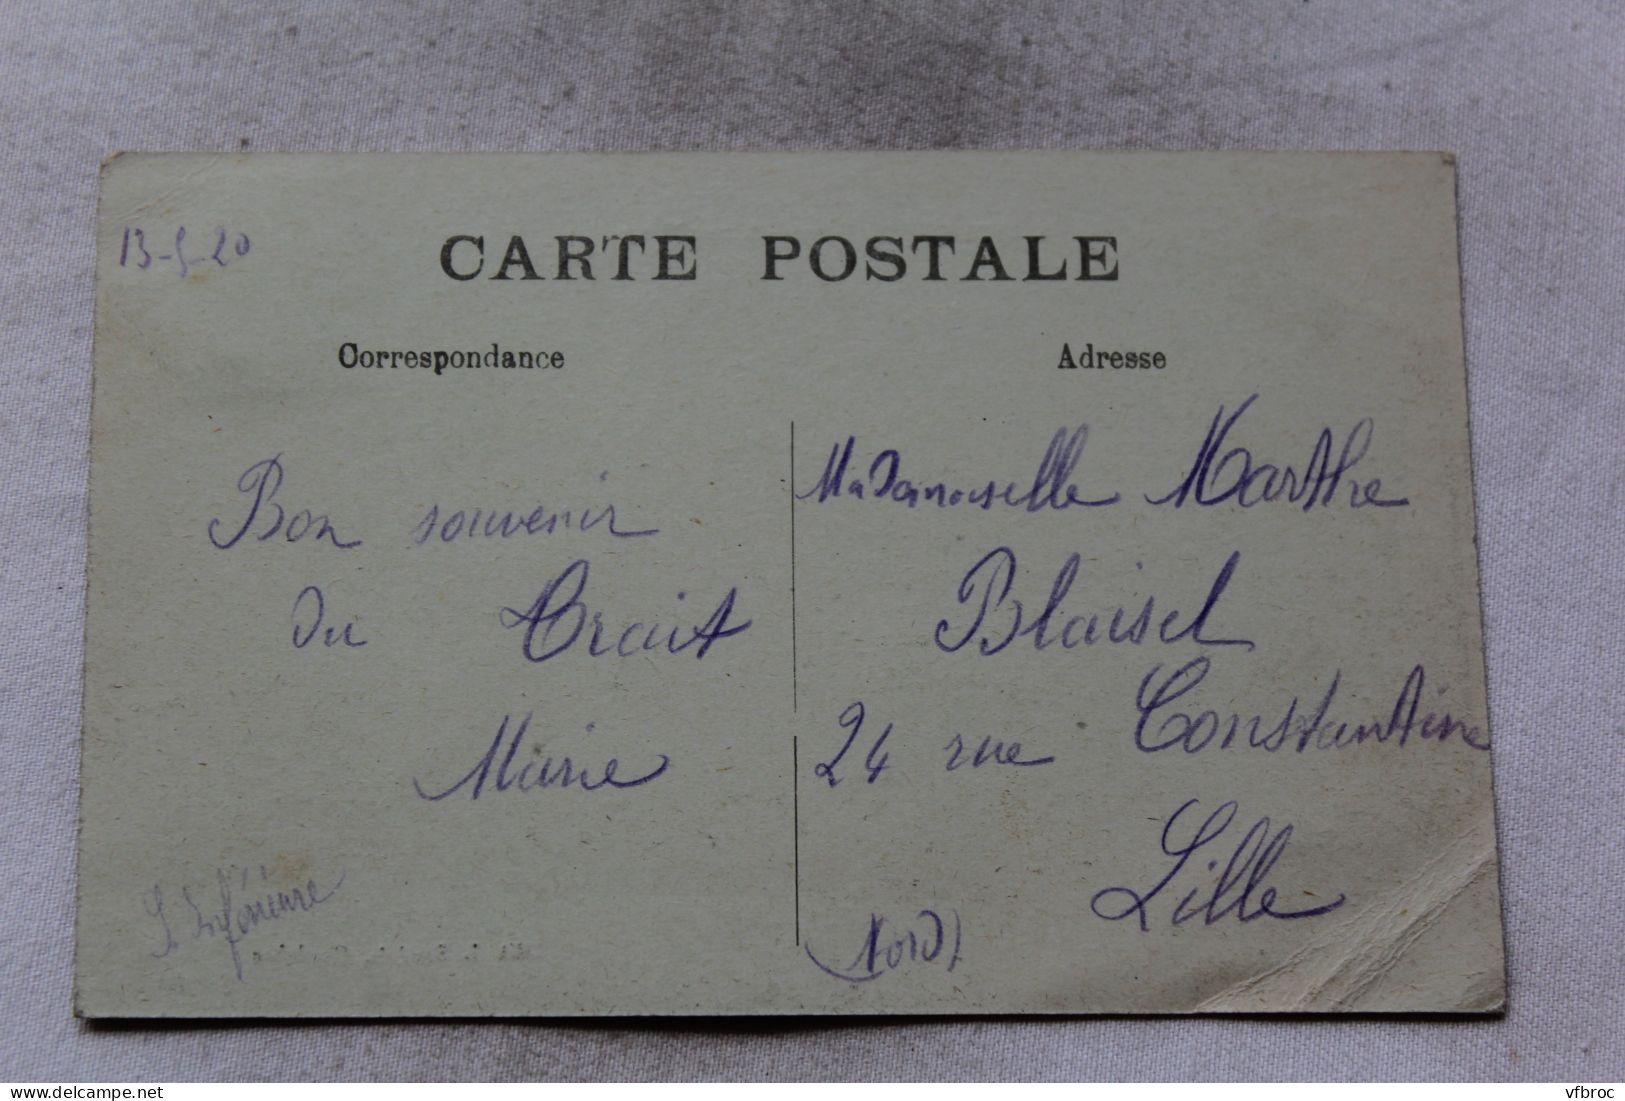 13-5-20
CARTE POSTALE
Correspondance
Bon souvenir
du Trait
Marie
S. Inférieure
Adresse
Mademoiselle Marthe
Blaisel
24 rue Constantine
Lille
(Nord)
www.delcampe.net
vfbroc